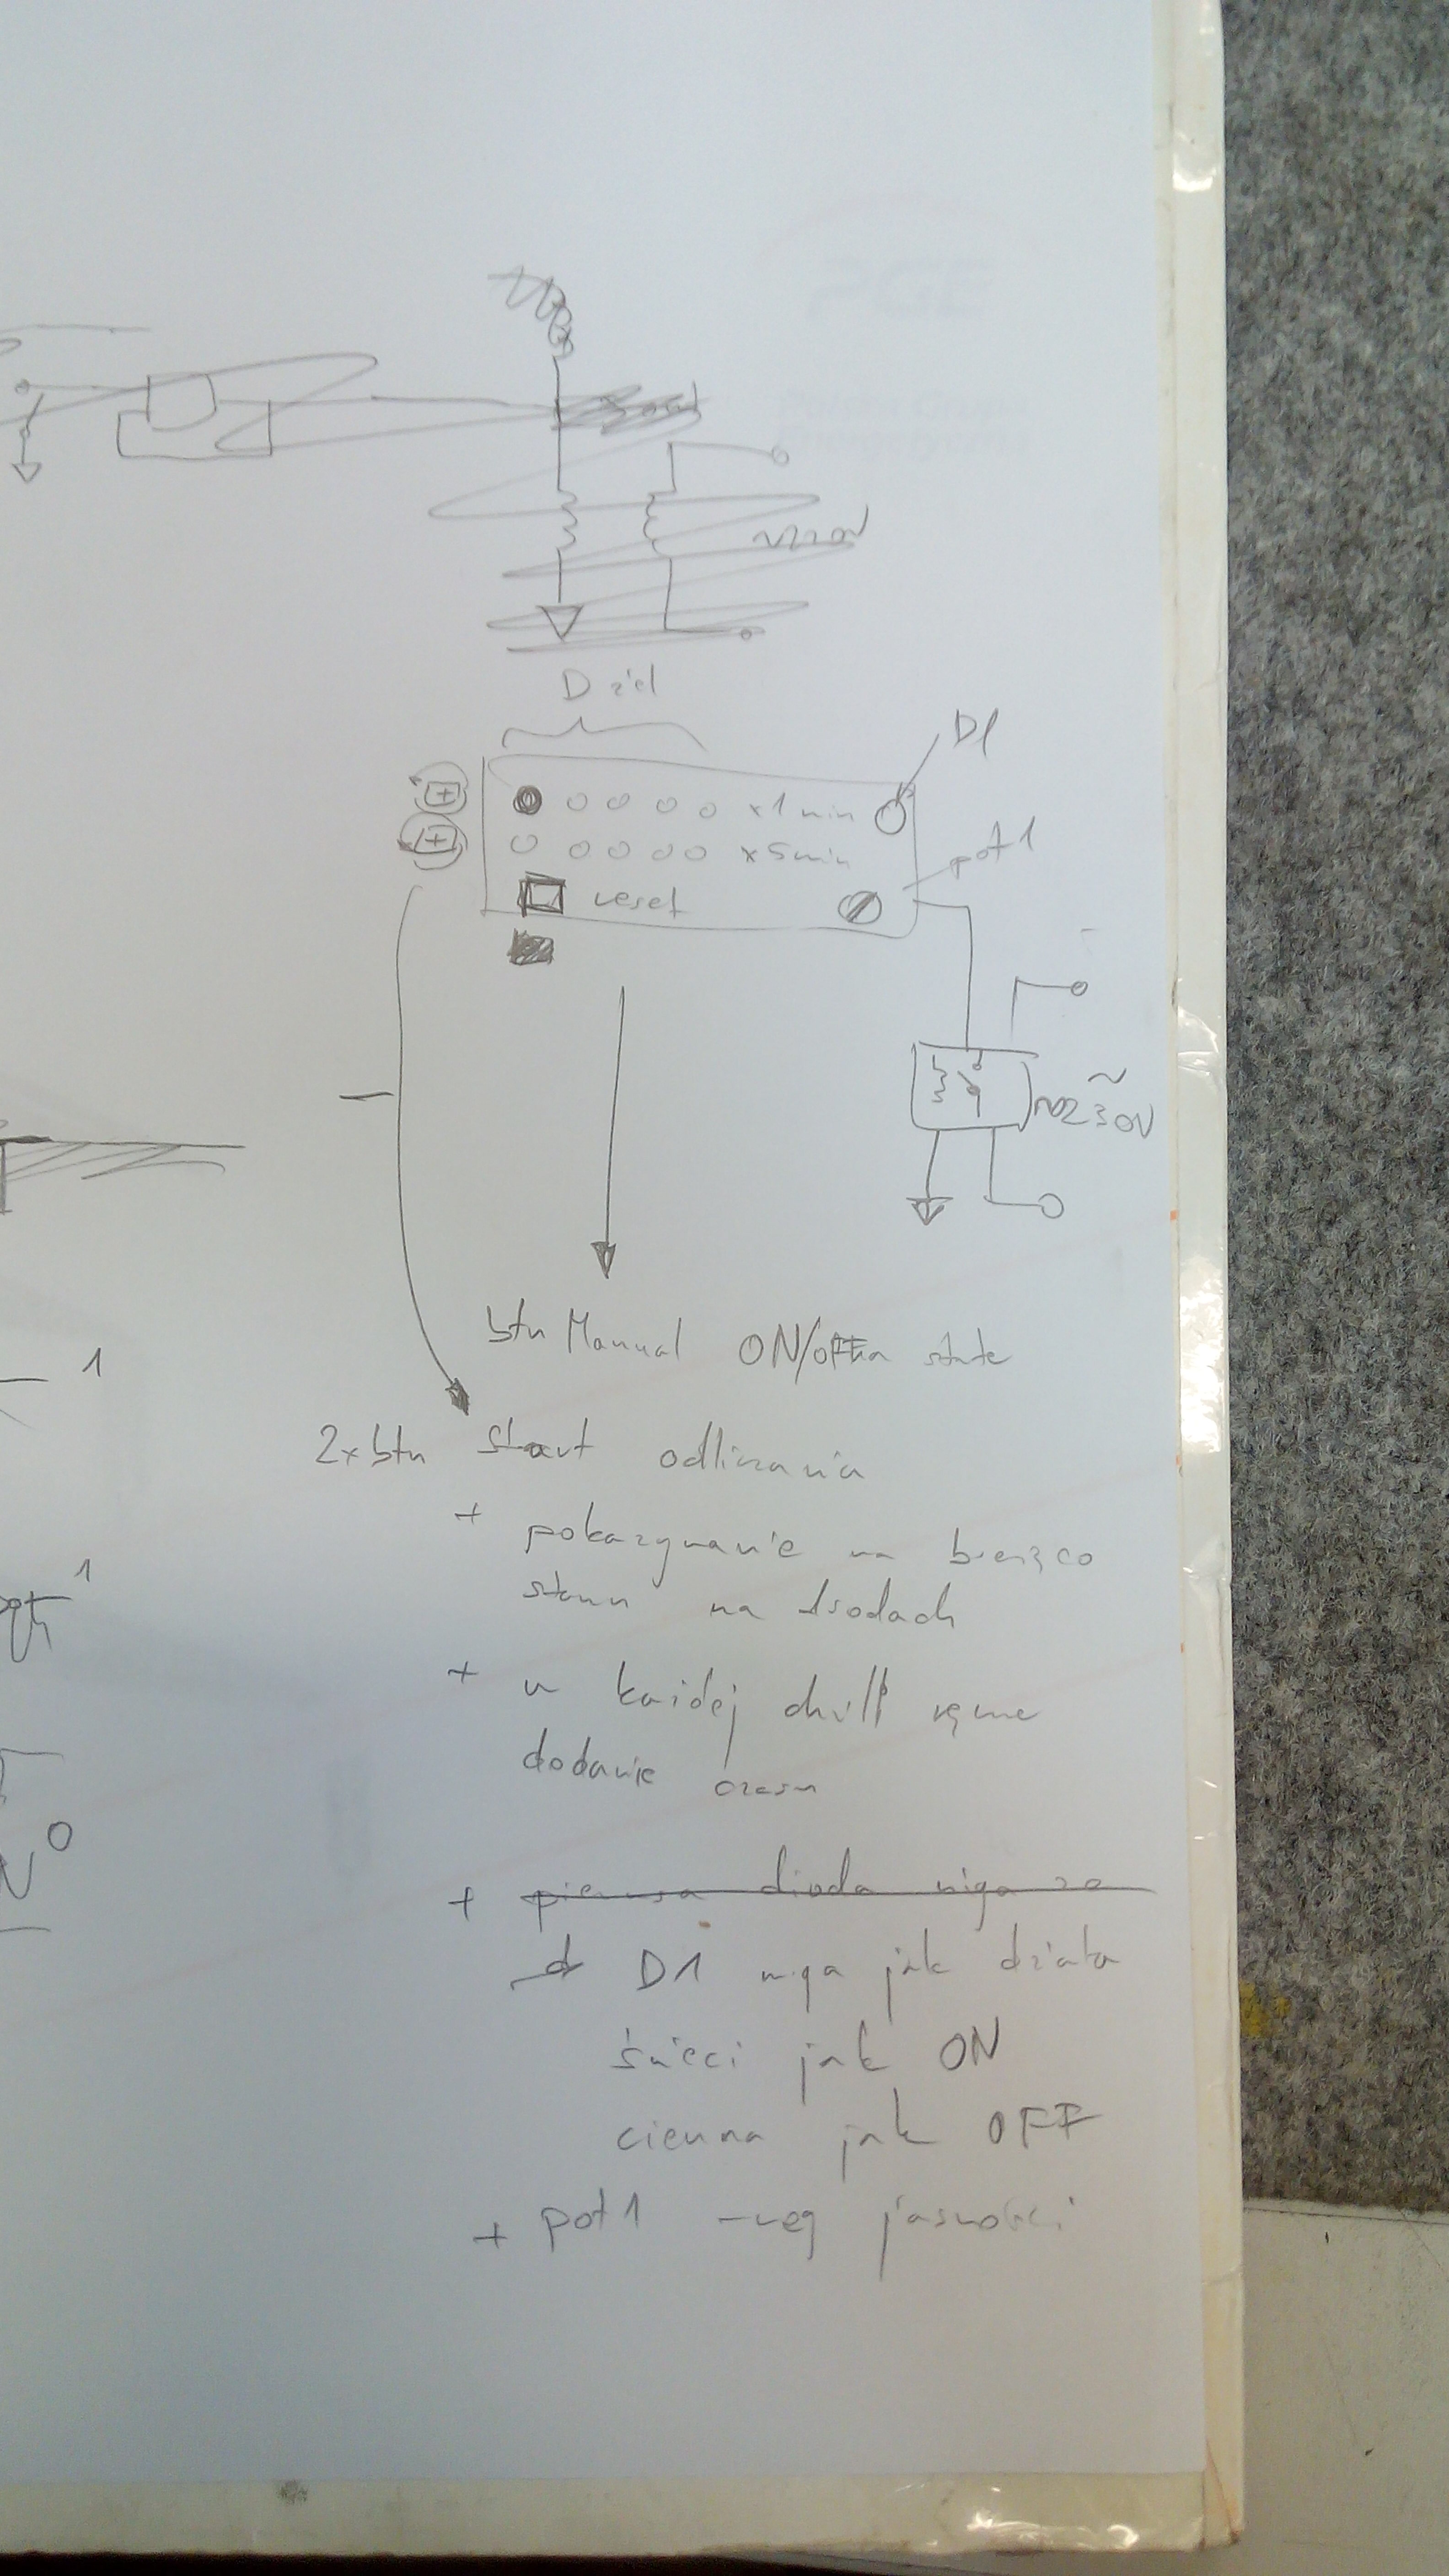 D ziel
D1
x1 min
x5min
pot 1
reset
~230V
btn Manual ON/OFF state
2xbtn Start odliczania
+ pokazywanie na bieżąco
stanu na diodach
+ w każdej chwili ręczne
dodanie czasu
+ pierwsza dioda miga za
D1 miga jak działa
świeci jak ON
ciemna jak OFF
+ pot1 - reg jasności
1
1
N 0